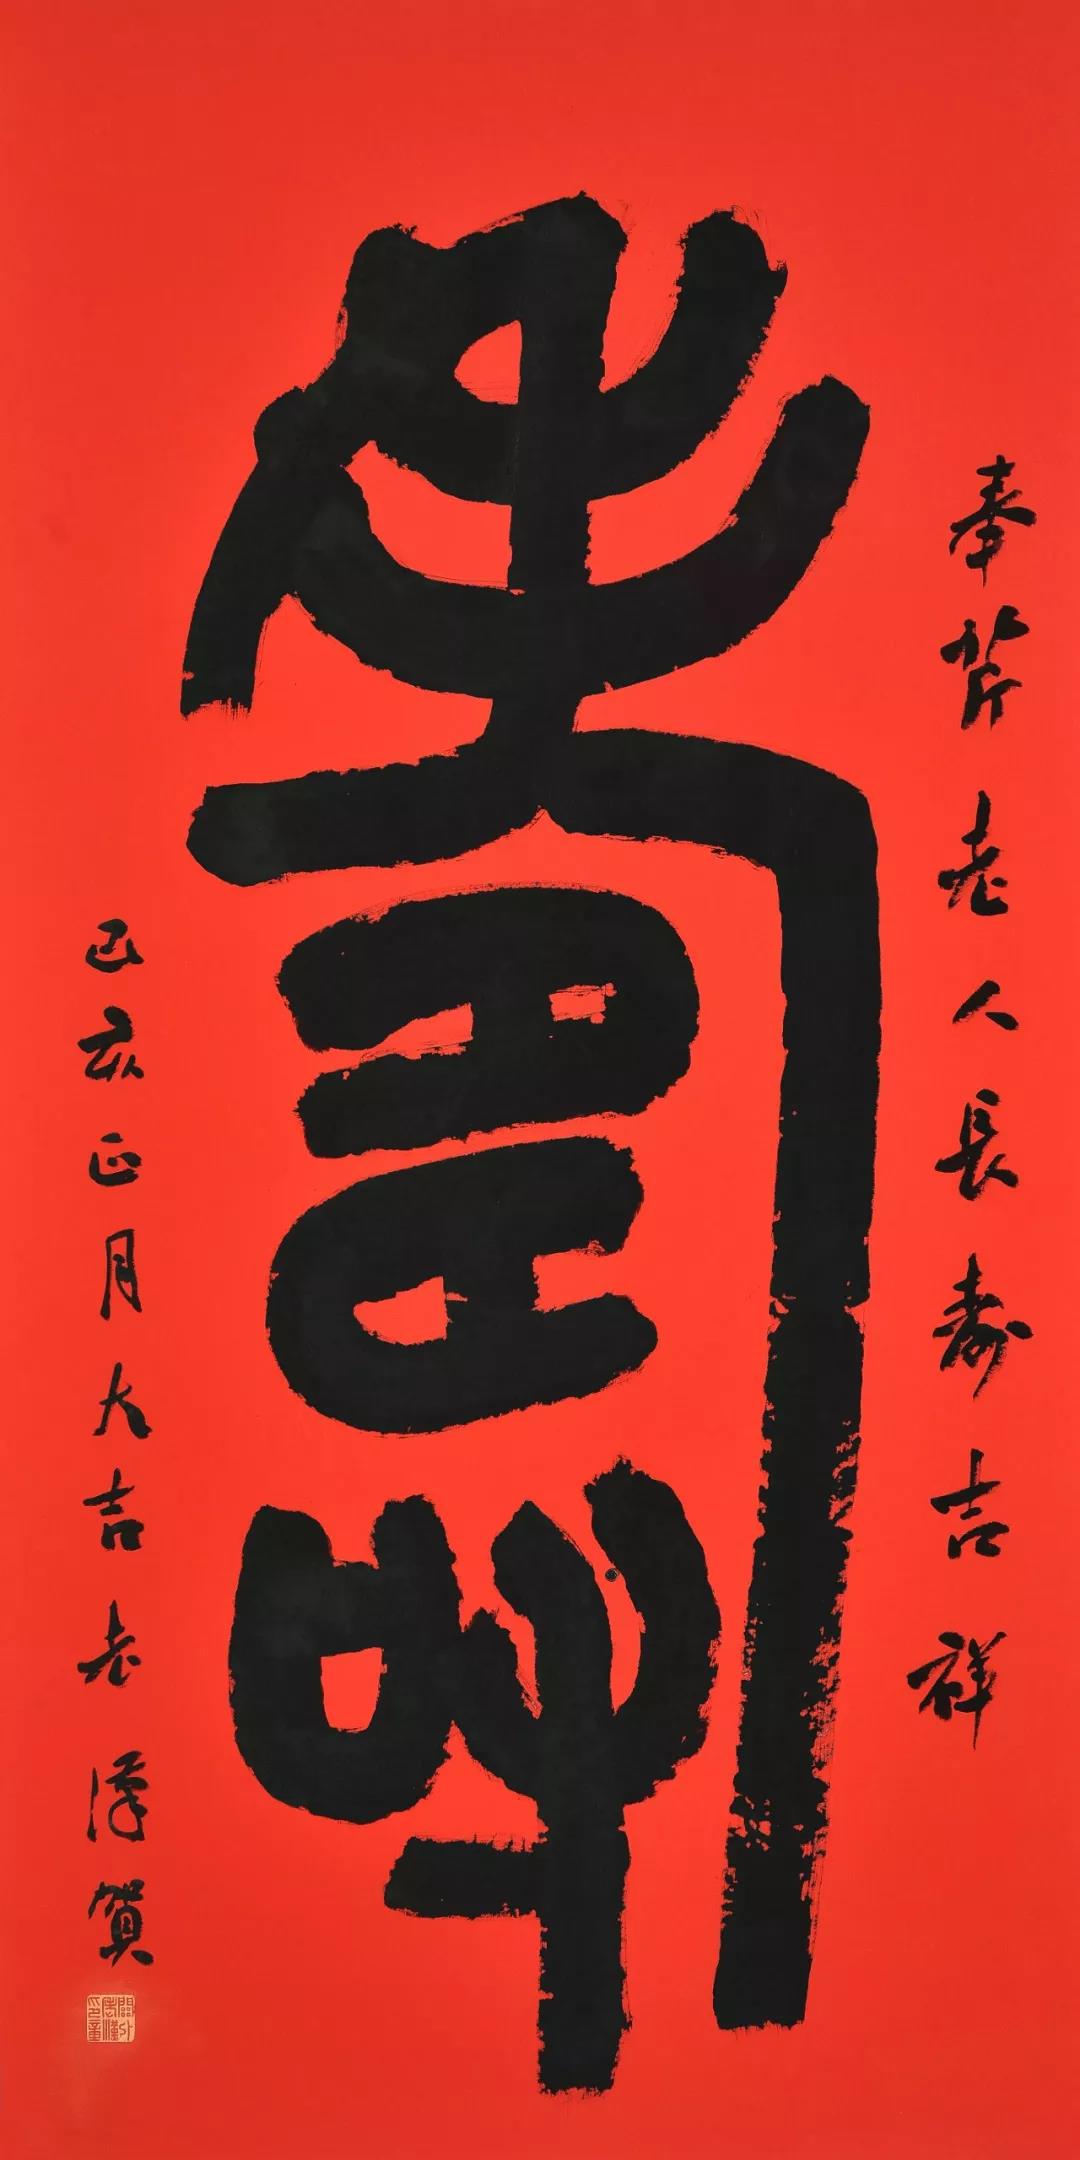 壽
奉芹老人長壽吉祥
己亥正月大吉老漢賀